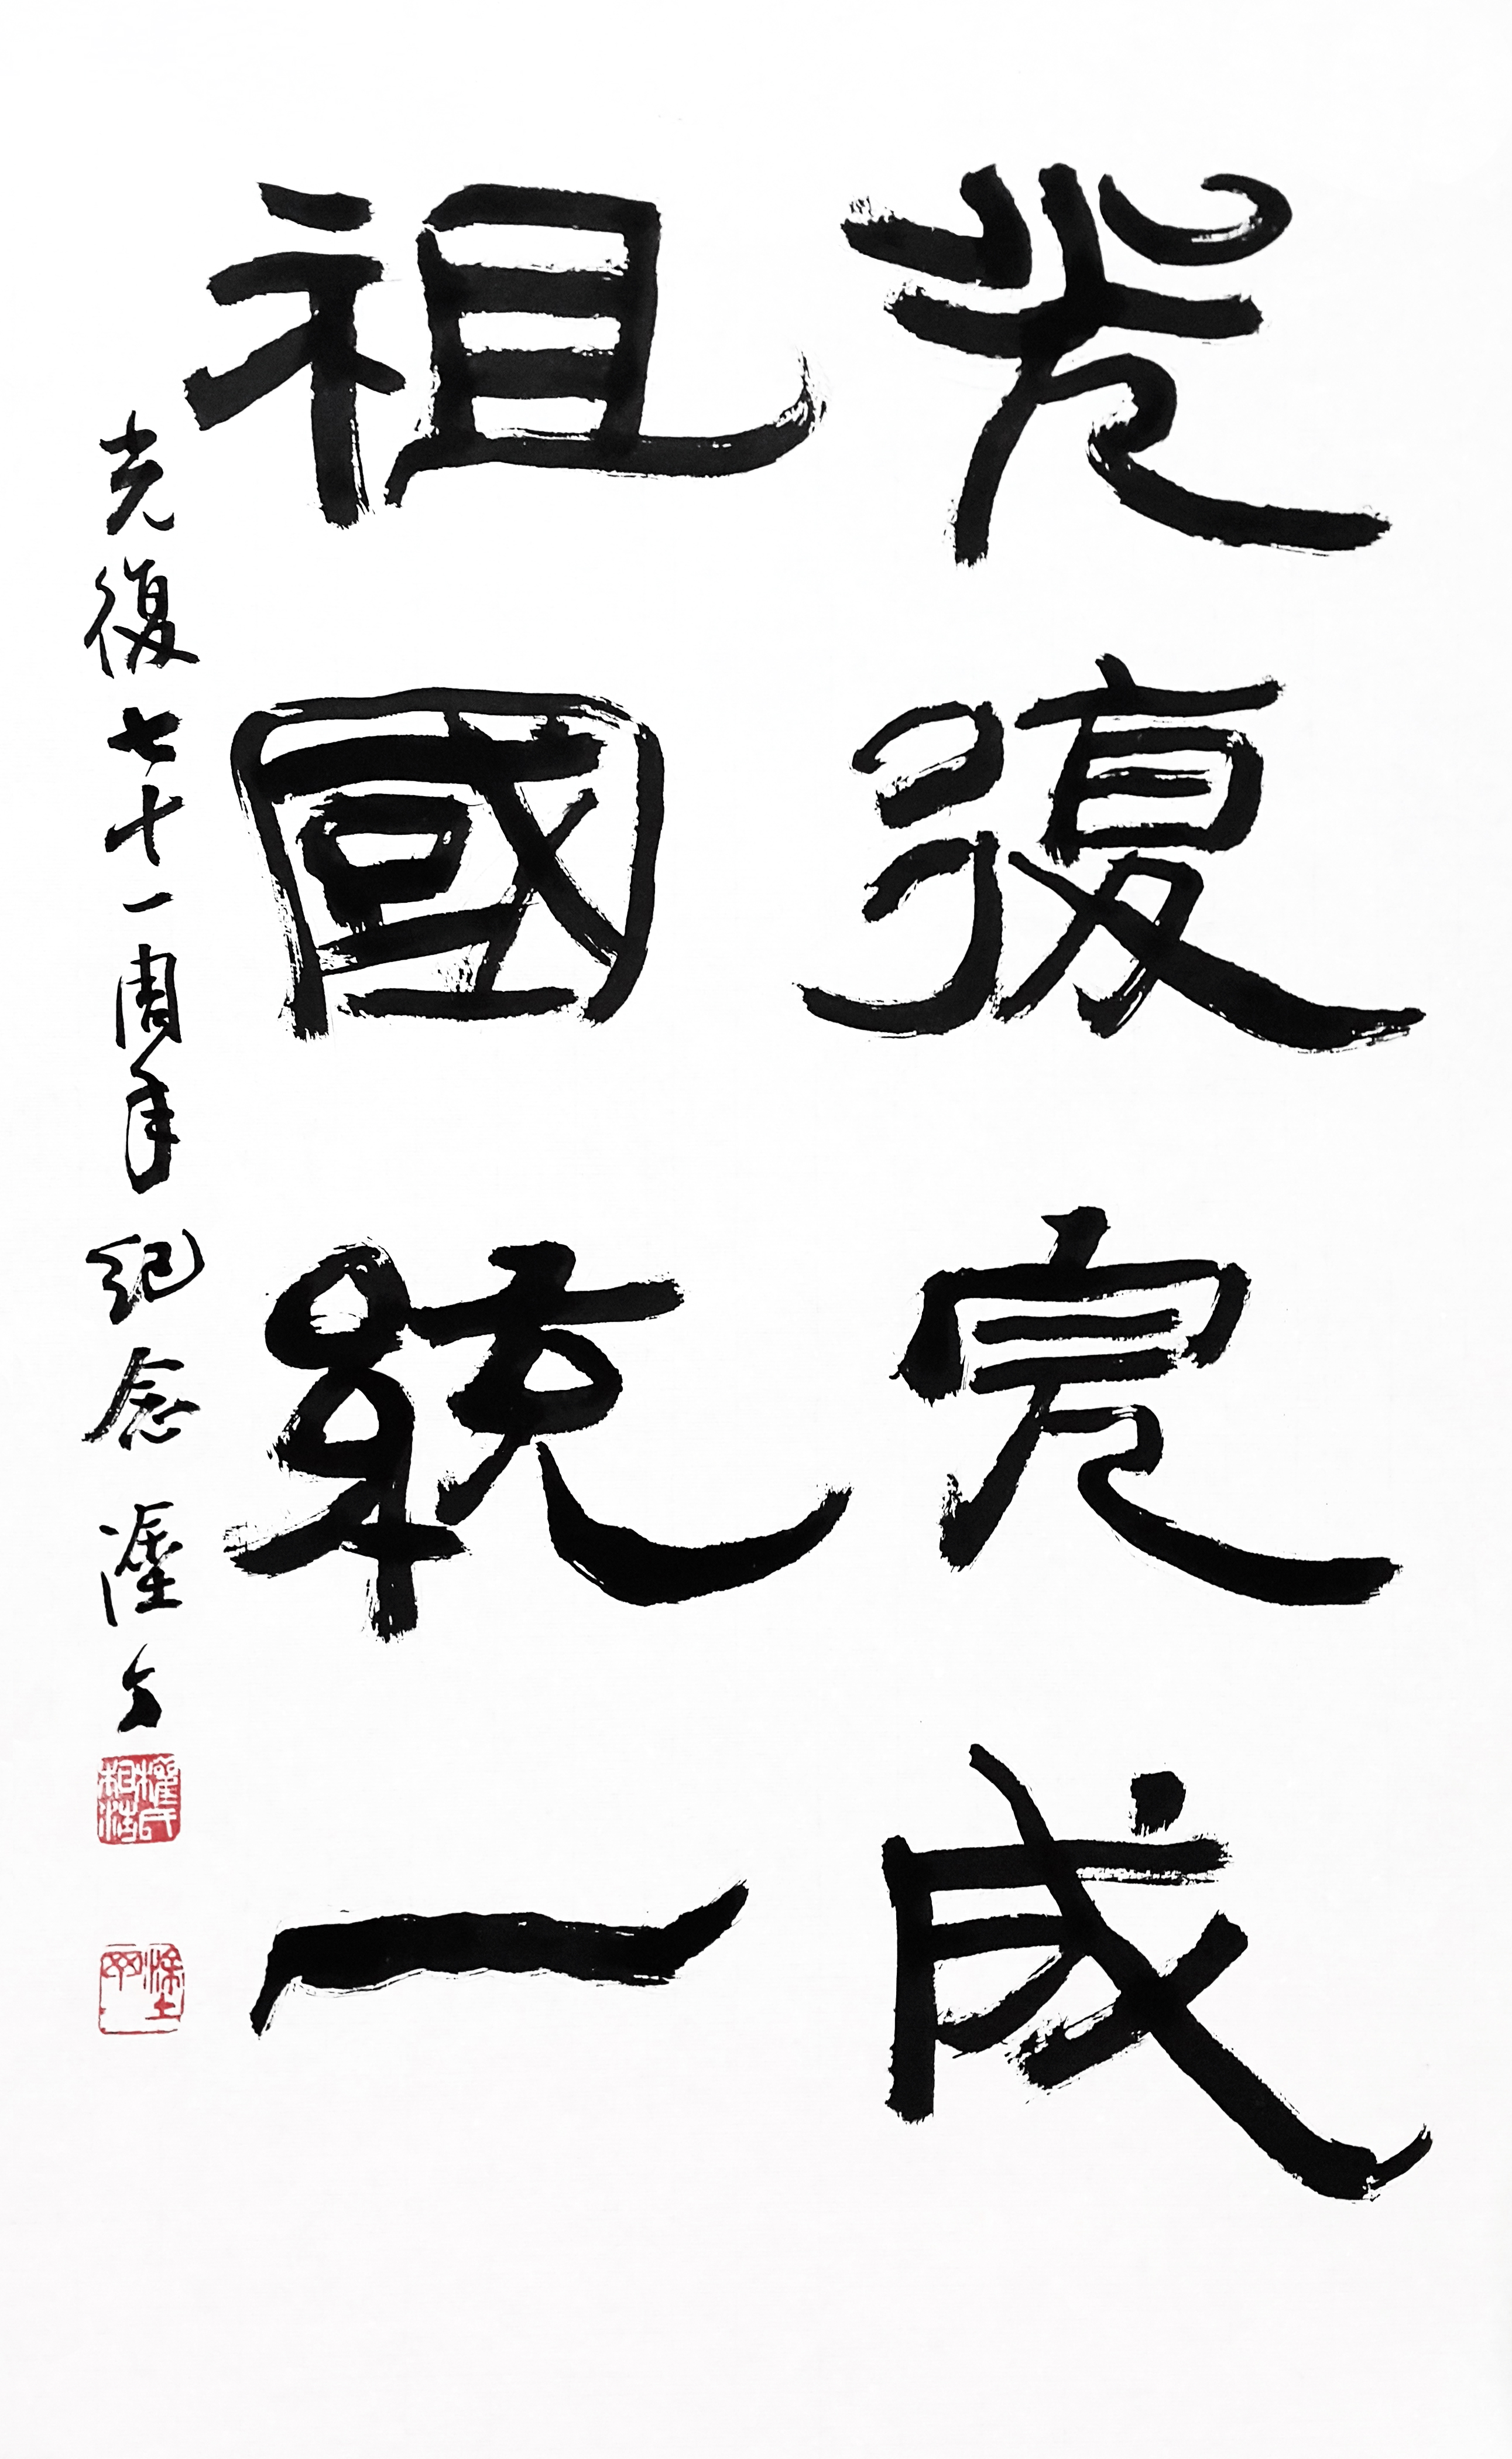 光復完成
祖國統一
光復七十一周年紀念
權氏相浩